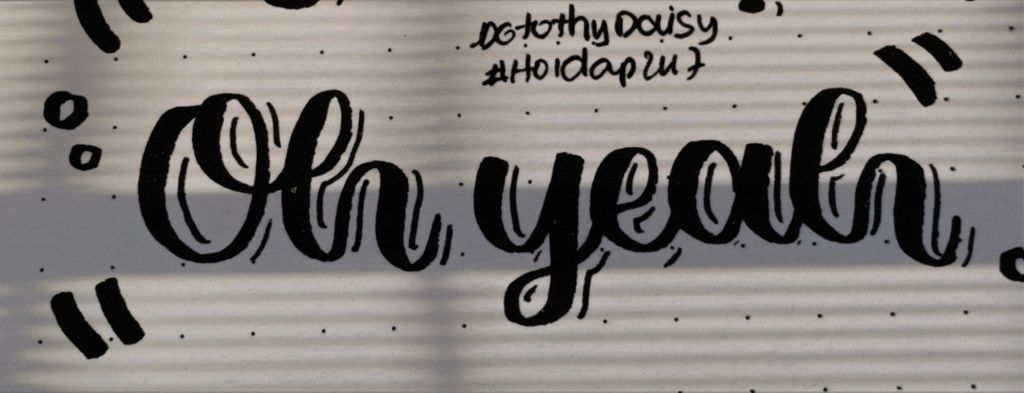 DorothyDaisy
#Hoidap247
Oh yeah